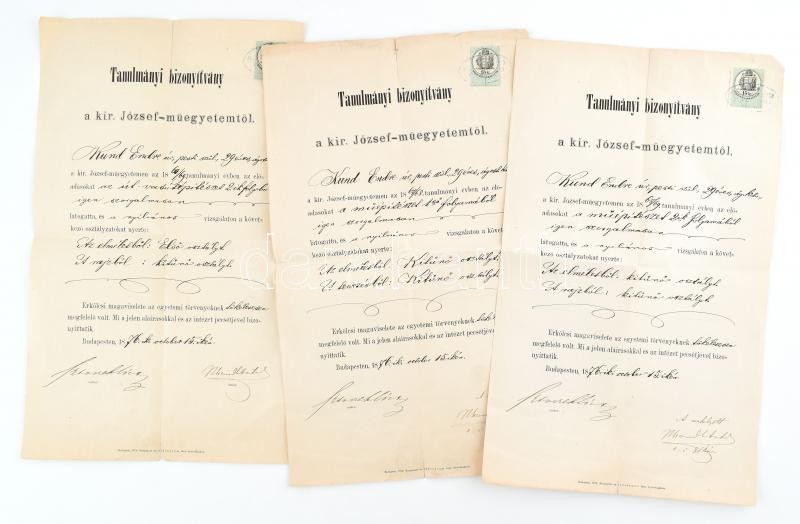 Tanulmányi bizonyítvány
a kir. József-műegyetemtől.
Kund Endre úr, pesti szül. 29 éves,
a kir. József-műegyetemen az 18 tanulmányi évben az elő-
adásokat az út
igen szorgalmasan
látogatta, és a nyilvános vizsgálaton a követ-
kező osztályzatokat nyerte:
Az elméletből: Első osztályt
A rajzból: kitünő osztályt
Erkölcsi magaviselete az egyetemi törvényeknek tökéletesen
megfelelő volt. Mi a jelen aláirásokkal és az intézet pecsétjével bizo-
nyíttatik.
Budapesten, 1876. ik october 15. ikén.
Tanulmányi bizonyítvány
a kir. József-műegyetemtől.
Kund Endre úr, pesti szül. 29 éves,
a kir. József-műegyetemen az 18 tanulmányi évben az elő-
adásokat a műépítészet 1ső folyamából
igen szorgalmasan
látogatta, és a nyilvános vizsgálaton a követ-
kező osztályzatokat nyerte:
Az elméletből: Kitünő osztályt
Kitünő osztályt
Erkölcsi magaviselete az egyetemi törvényeknek tökéletesen
megfelelő volt. Mi a jelen aláirásokkal és az intézet pecsétjével bizo-
nyíttatik.
Budapesten, 1876. ik october 15. ikén.
Tanulmányi bizonyítvány
a kir. József-műegyetemtől.
Kund Endre úr, pesti szül. 29 éves,
a kir. József-műegyetemen az 18 tanulmányi évben az elő-
adásokat a műépítészet 2ik folyamából
igen szorgalmasan
látogatta, és a nyilvános vizsgálaton a követ-
kező osztályzatokat nyerte:
Az elméletből: kitünő osztályt
A rajzból: kitünő osztályt
Erkölcsi magaviselete az egyetemi törvényeknek tökéletesen
megfelelő volt. Mi a jelen aláirásokkal és az intézet pecsétjével bizo-
nyíttatik.
Budapesten, 1876. ik october 15. ikén.